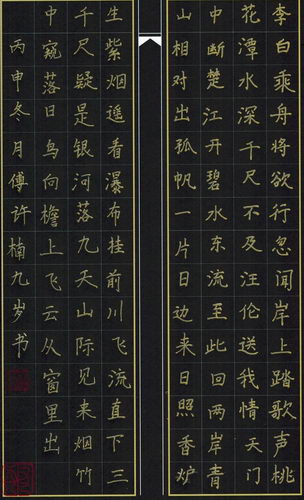 李白乘舟将欲行忽闻岸上踏歌声桃
花潭水深千尺不及汪伦送我情天门
中断楚江开碧水东流至此回两岸青
山相对出孤帆一片日边来日照香炉
生紫烟遥看瀑布桂前川飞流直下三
千尺疑是银河落九天山际见来烟竹
中窥落日鸟向檐上飞云从窗里出
丙申冬月傅许楠九岁书